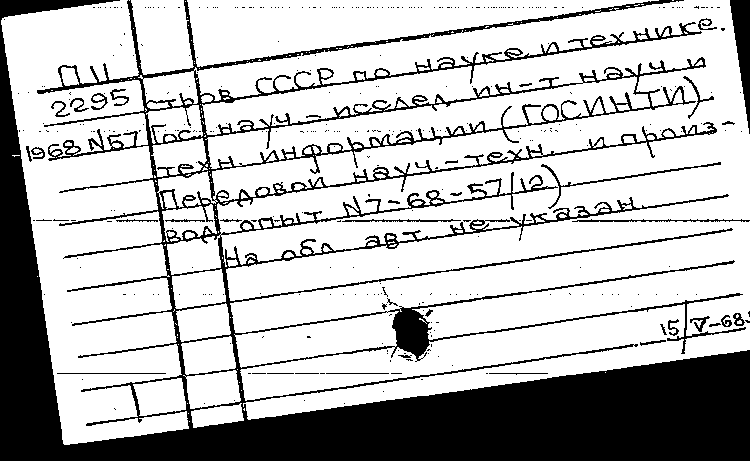 ПИ
2295
1968 N57
стров СССР по науке и технике.
Гос. науч.-исслед ин-т науч. и
техн. информации (ГОСИНТИ).
Передовой науч.-техн. и произ-
вод. опыт. N7-68-57/12).
На обл авт. не указан.
15/V-68.